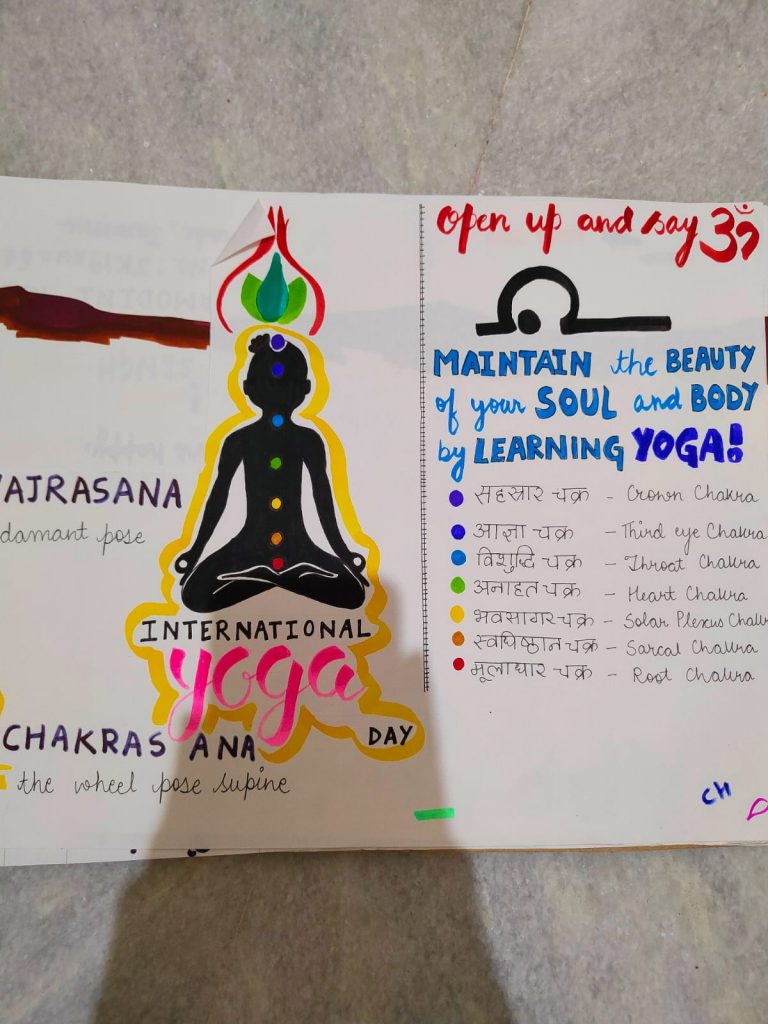 VAJRASANA
damant pose
INTERNATIONAL
yoga
DAY
CHAKRASANA
the wheel pose supine
open up and say ॐ
MAINTAIN the BEAUTY
of your SOUL and BODY
by LEARNING YOGA!
सहस्रार चक्र - Crown Chakra
आज्ञा चक्र - Third eye Chakra
विशुद्धि चक्र - Throat Chakra
अनाहत चक्र - Heart Chakra
भवसागर चक्र - Solar Plexus Chak
स्वधिष्ठान चक्र - Sarcal Chakra
मूलाधार चक्र - Root Chakra
CH